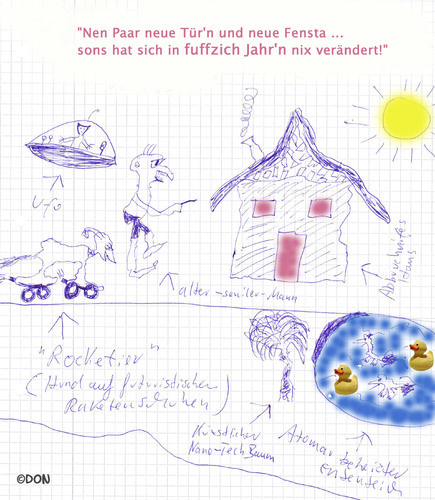 "Nen Paar neue Tür'n und neue Fensta ...
sons hat sich in fuffzich Jahr'n nix verändert!"
Ufo
alter-seniler-Mann
Abbruchreifes
Haus
"Rocketier"
(Hund auf futuristischen
Raketenschuhen)
Künstlicher
Nano-Tech Baum
Atomar beheizter
Ententeich
©DON